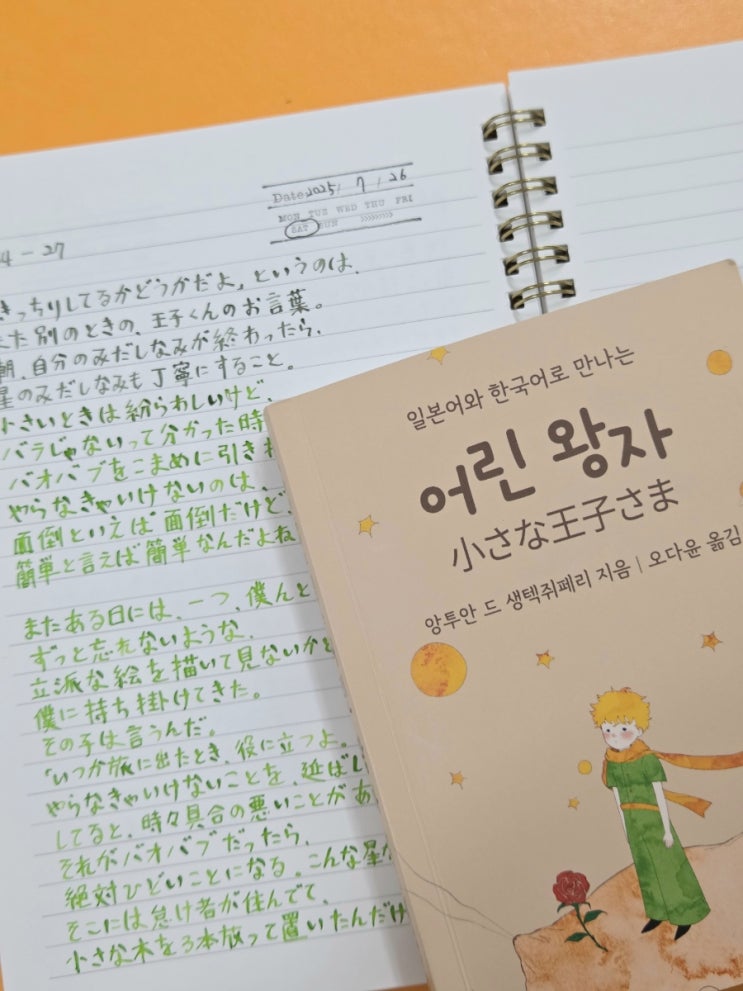 Date 2025/ 7 / 26
MON TUE WED THU FRI
SAT SUN
4 - 27
きっちりしてるかどうかだよ」というのは、
た別のときの、王子くんのお言葉。
朝、自分のみだしなみが終わったら、
星のみだしなみも丁寧にすること。
小さいときは紛らわしいけど、
バラじゃないって分かった時
バオバブをこまめに引き
やらなきゃいけないのは、
面倒といえば面倒だけど、
簡単と言えば簡単なんだよね
またある日には、一つ、僕んと
ずっと忘れないような、
立派な絵を描いて見ないかと
僕に持ち掛けてきた。
その子は言うんだ。
「いつか旅に出たとき、役に立つよ。
やらなきゃいけないことを、延ばし
してると、時々具合の悪いことがあ
それがバオバブだったら、
絶対ひどいことになる。こんな星が
そこには怠け者が住んでて、
小さな木を3本放って置いたんだけ
일본어와 한국어로 만나는
어린 왕자
小さな王子さま
앙투안 드 생텍쥐페리 지음 | 오다윤 옮김